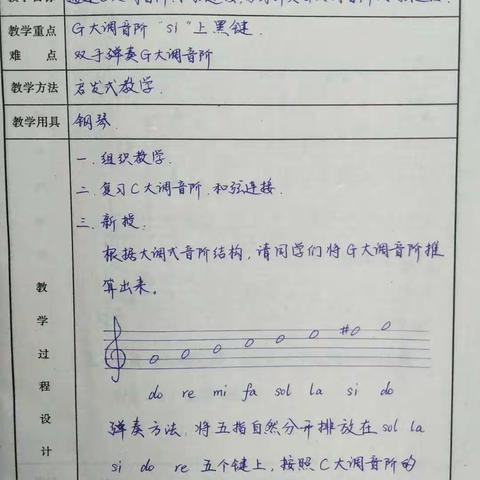 教学重点 G大调音阶“si”上黑键.
难 点 双手弹奏G大调音阶
教学方法 启发式教学.
教学用具 钢琴.
教学过程设计
一.组织教学.
二.复习C大调音阶.和弦连接.
三.新授:
根据大调式音阶结构,请同学们将G大调音阶推
算出来。
#
do re mi fa sol la si do
弹奏方法,将五指自然分开排放在sol la
si do re 五个键上,按照C大调音阶的